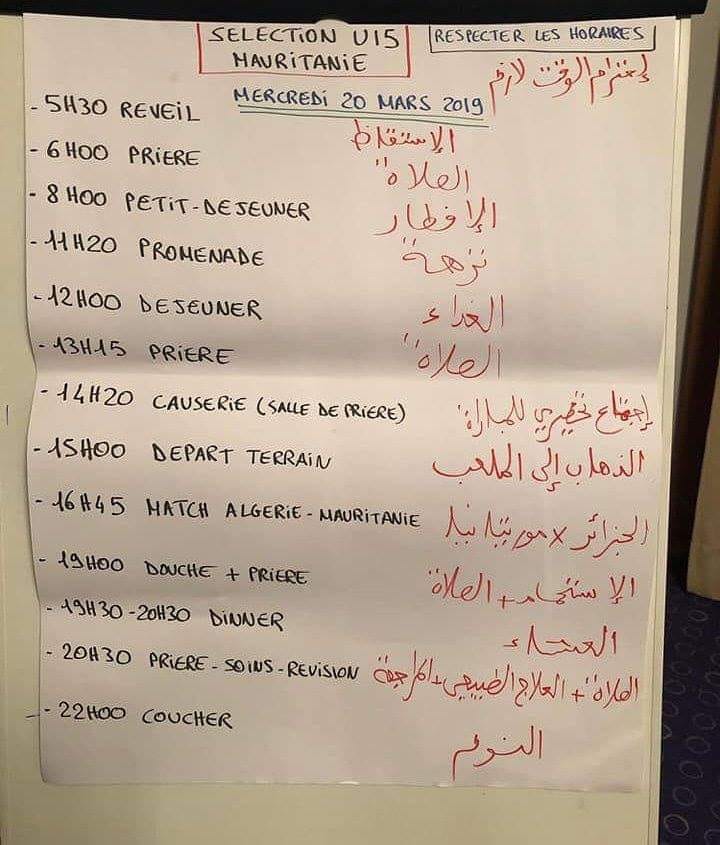 SELECTION U15 RESPECTER LES HORAIRES
MAURITANIE
إحترام الوقت لازم
MERCREDI 20 MARS 2019
- 5H30 REVEIL الإستقاظ
- 6H00 PRIERE الصلاة
- 8H00 PETIT-DEJEUNER الإفطار
- 11H20 PROMENADE نزهة
- 12H00 DEJEUNER الغداء
- 13H15 PRIERE الصلاة
- 14H20 CAUSERIE (SALLE DE PRIERE) إجتماع تحضيري للمباراة
- 15H00 DEPART TERRAIN الذهاب إلى الملعب
- 16H45 MATCH ALGERIE-MAURITANIE الجزائر x موريتانيا
- 19H00 DOUCHE + PRIERE الإستحمام + الصلاة
- 19H30-20H30 DINNER العشاء
- 20H30 PRIERE-SOINS-REVISION الصلاة + العلاج الطبيعي + المراجعة
- 22H00 COUCHER النوم